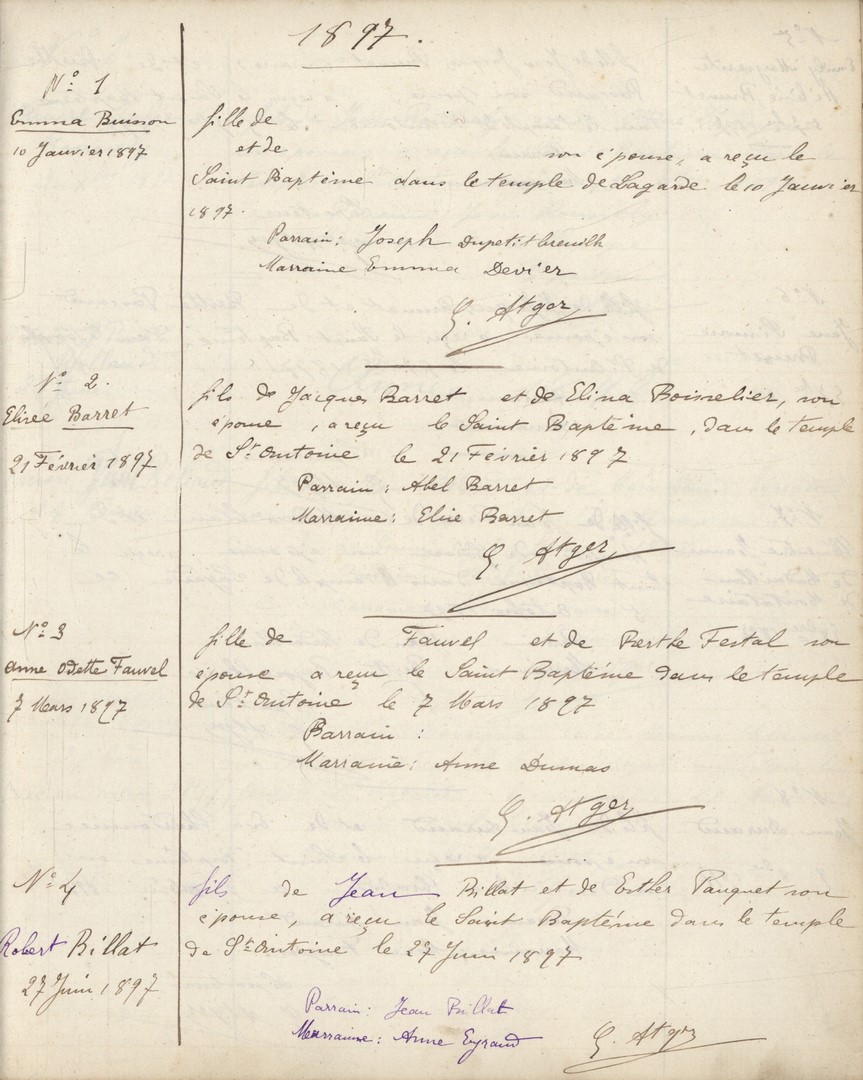 1897.
Nº 1
Emma Buisson
10 Janvier 1897
fille de
et de son épouse, a reçu le
Saint Baptême dans le temple de Lagarde le 10 Janvier
1897.
Parrain: Joseph Dupetitbreuilh
Marraine Emma Devier
G. Atger
Nº 2.
Elisée Barret
21 Février 1897
fils de Jacques Barret et de Elina Boisselier, son
épouse, a reçu le Saint Baptême, dans le temple
de St Antoine le 21 Février 1897
Parrain: Abel Barret
Marraine: Elise Barret
G. Atger
Nº 3
Anne Odette Fauvel
7 Mars 1897
fille de Fauvel et de Berthe Festal son
épouse a reçu le Saint Baptême dans le temple
de St Antoine le 7 Mars 1897
Parrain:
Marraine: Anne Dumas
G. Atger
Nº 4
Robert Billat
27 Juin 1897
fils de Jean Billat et de Esther Pauquet son
épouse, a reçu le Saint Baptême dans le temple
de St Antoine le 27 Juin 1897
Parrain: Jean Billat
Marraine: Anne Eyraud
G. Atger